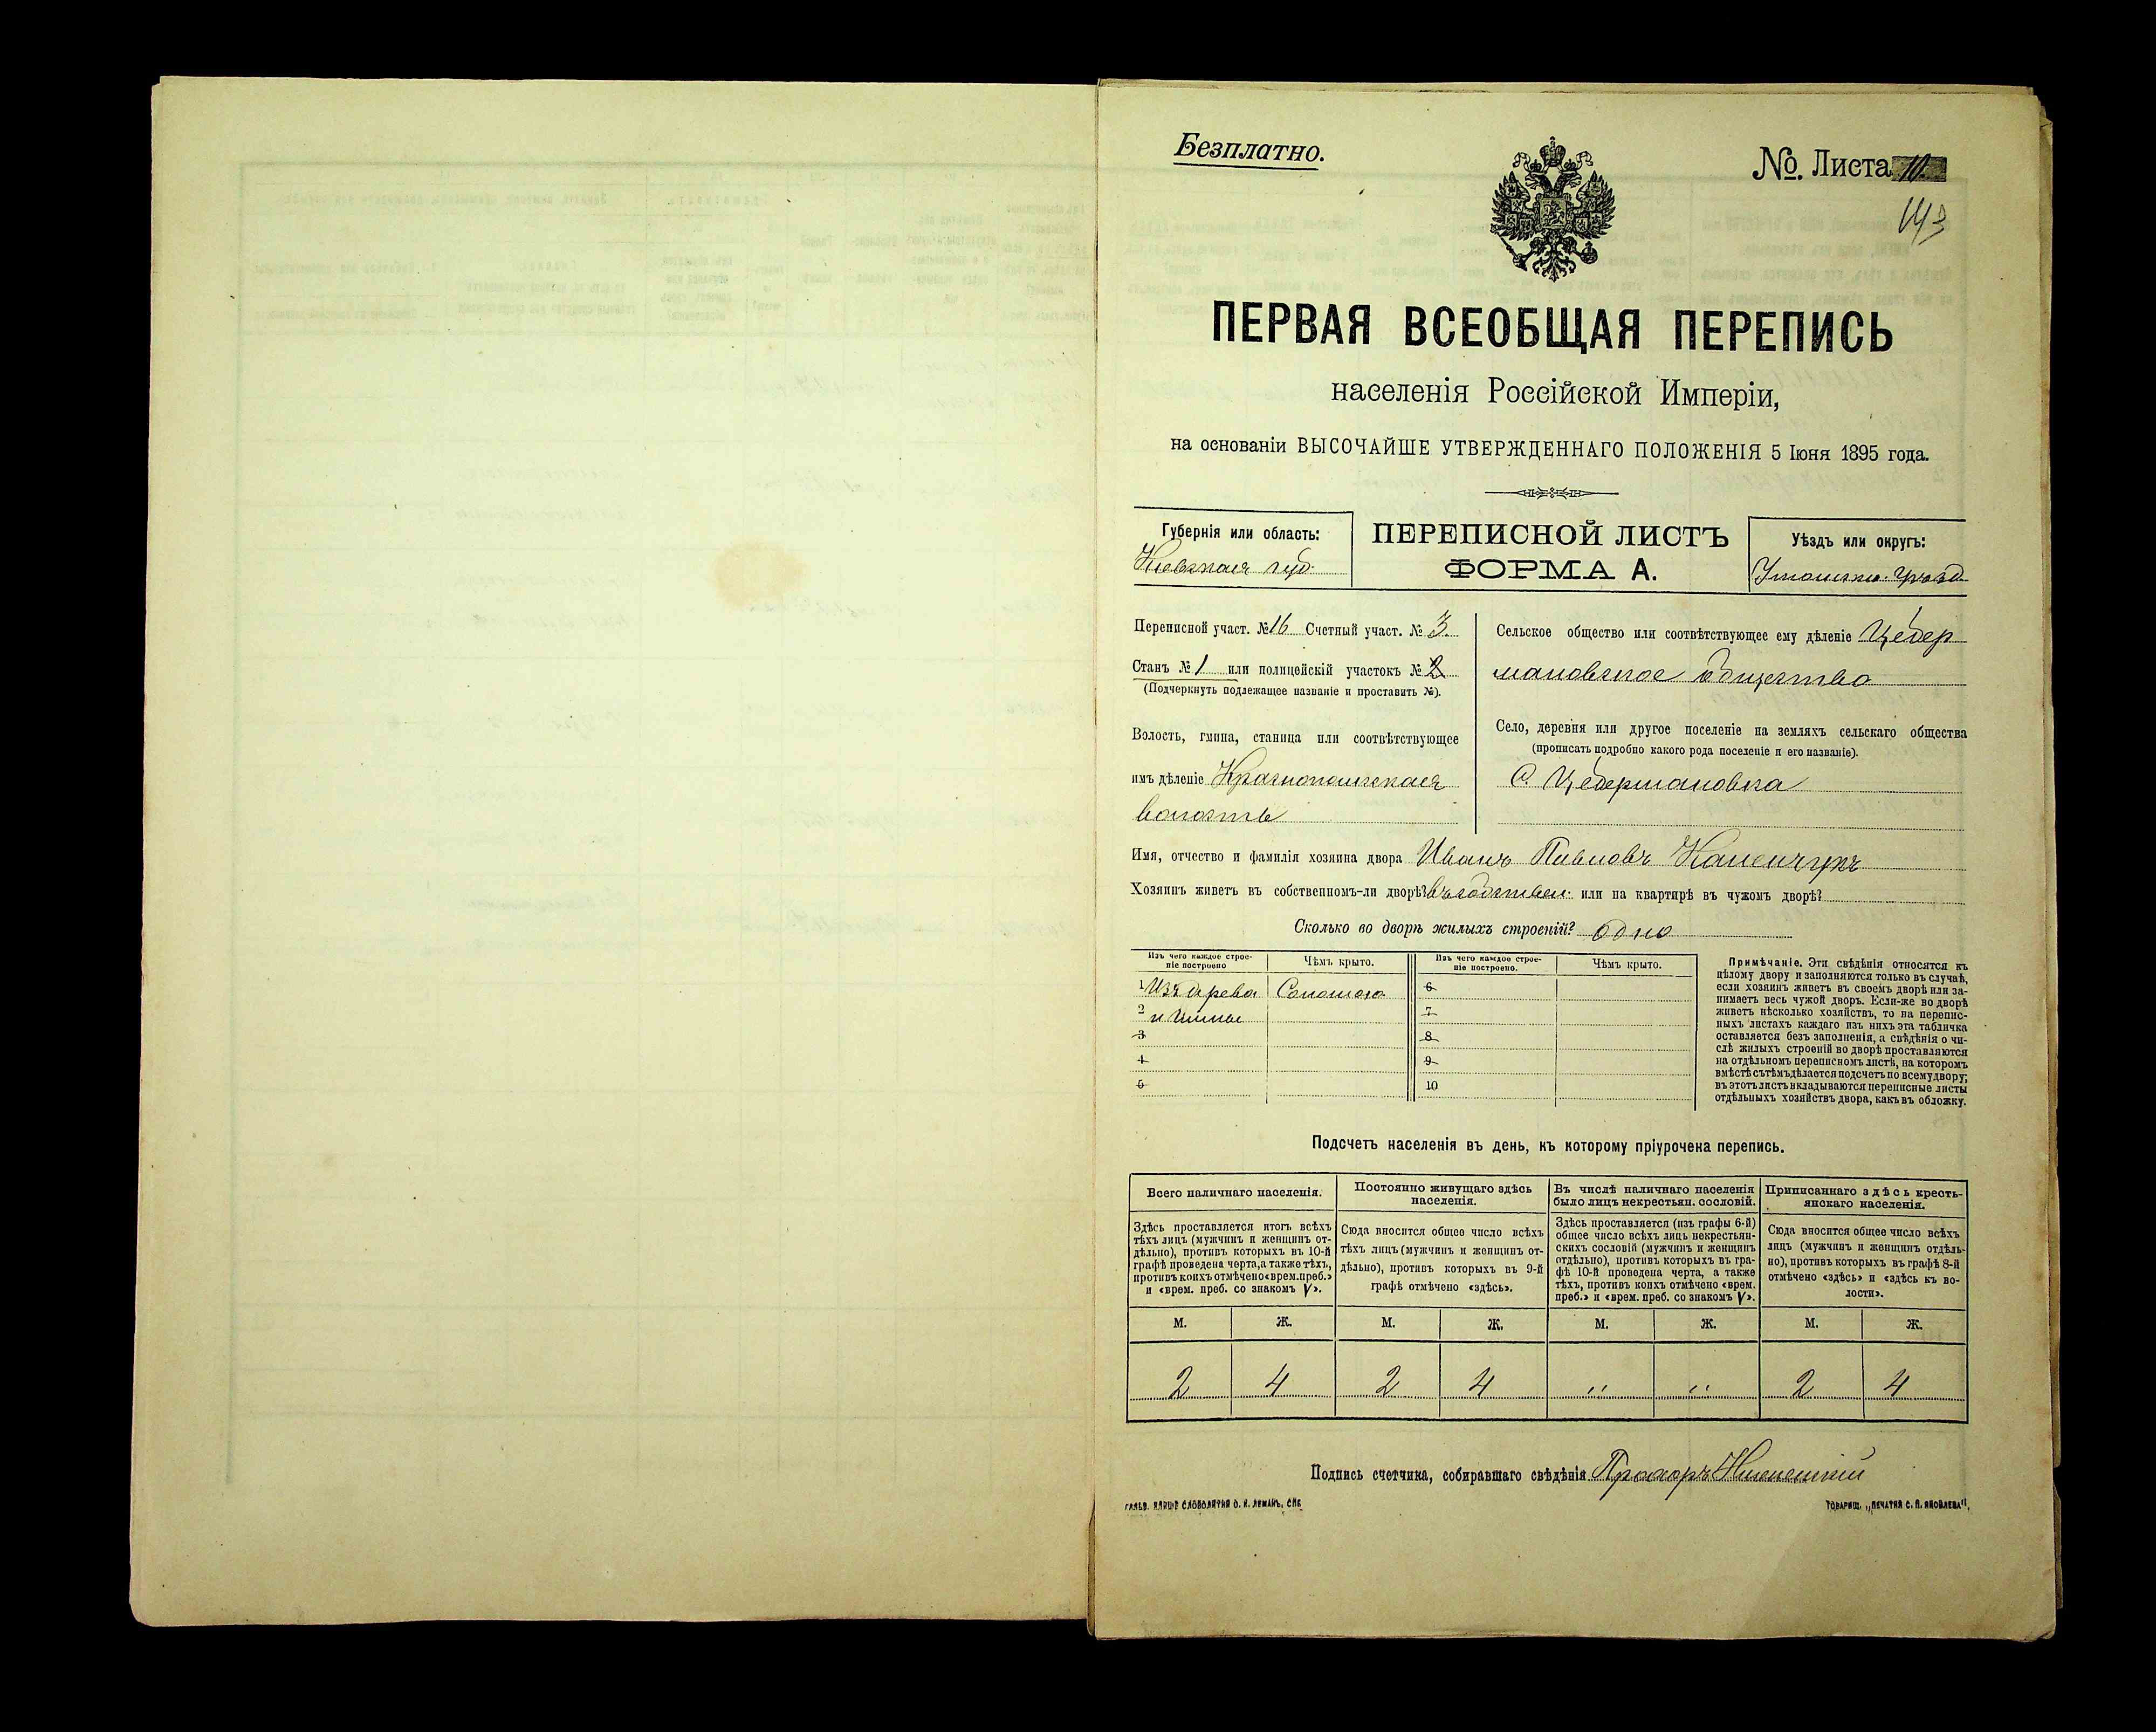 Безплатно.
№. Листа 10.
143
ПЕРВАЯ ВСЕОБЩАЯ ПЕРЕПИСЬ
населенія Россійской Имперіи,
на основаніи ВЫСОЧАЙШЕ УТВЕРЖДЕННАГО ПОЛОЖЕНІЯ 5 Іюня 1895 года.
Губернія или область:
Кіевская губ.
ПЕРЕПИСНОЙ ЛИСТЪ
ФОРМА А.
Уѣздъ или округъ:
Уманск. Уѣзд
Переписной участ. № 16 Счетный участ. № 3.
Станъ № 1 или полицейскій участокъ № 2
(Подчеркнуть подлежащее названіе и проставить №).
Волость, гмина, станица или соотвѣтствующее
имъ дѣленіе Краснопольская
волость
Сельское общество или соотвѣтствующее ему дѣленіе Цебер
мановское общество
Село, деревня или другое поселеніе на земляхъ сельскаго общества
(прописать подробно какого рода поселеніе и его названіе).
С. Цебермановка
Имя, отчество и фамилія хозяина двора Иванъ Павловъ
Хозяинъ живетъ въ собственномъ-ли дворѣ? въ собствен. или на квартирѣ въ чужомъ дворѣ?
Сколько во дворѣ жилыхъ строеній? одно
Изъ чего каждое строе-
ніе построено
Чѣмъ крыто.
Изъ чего каждое строе-
ніе построено.
Чѣмъ крыто.
1 Изъ дерева Соломою 6
2 и глины 7
3 8
4 9
5 10
Примѣчаніе. Эти свѣдѣнія относятся къ
цѣлому двору и заполняются только въ случаѣ,
если хозяинъ живетъ въ своемъ дворѣ или за-
нимаетъ весь чужой дворъ. Если-же во дворѣ
живетъ нѣсколько хозяйствъ, то на перепис-
ныхъ листахъ каждаго изъ нихъ эта табличка
оставляется безъ заполненія, а свѣдѣнія о чи-
слѣ жилыхъ строеній во дворѣ проставляются
на отдѣльномъ переписномъ листѣ, на которомъ
вмѣстѣ съ тѣмъ дѣлается подсчетъ по всему двору;
въ этотъ листъ вкладываются переписные листы
отдѣльныхъ хозяйствъ двора, какъ въ обложку.
Подсчетъ населенія въ день, къ которому пріурочена перепись.
Всего наличнаго населенія.
Здѣсь проставляется итогъ всѣхъ
тѣхъ лицъ (мужчинъ и женщинъ от-
дѣльно), противъ которыхъ въ 10-й
графѣ проведена черта, а также тѣхъ,
противъ коихъ отмѣчено «врем. преб.»
и «врем. преб. со знакомъ V».
Постоянно живущаго здѣсь
населенія.
Сюда вносится общее число всѣхъ
тѣхъ лицъ (мужчинъ и женщинъ от-
дѣльно), противъ которыхъ въ 9-й
графѣ отмѣчено «здѣсь».
Въ числѣ наличнаго населенія
было лицъ некрестьян. сословій.
Здѣсь проставляется (изъ графы 6-й)
общее число всѣхъ лицъ некрестьян-
скихъ сословій (мужчинъ и женщинъ
отдѣльно), противъ которыхъ въ гра-
фѣ 10-й проведена черта, а также
тѣхъ, противъ коихъ отмѣчено «врем.
преб.» и «врем. преб. со знакомъ V».
Приписаннаго здѣсь кресть-
янскаго населенія.
Сюда вносится общее число всѣхъ
лицъ (мужчинъ и женщинъ отдѣль-
но), противъ которыхъ въ графѣ 8-й
отмѣчено «здѣсь» и «здѣсь къ во-
лости».
М. Ж. М. Ж. М. Ж. М. Ж.
2 4 2 4 " " 2 4
Подпись счетчика, собиравшаго свѣдѣнія Прохоръ
ГАЛЬВ. КЛИШЕ СЛОВОЛИТНИ О. И. ЛЕМАНЪ, СПБ
ТОВАРИЩ. „ПЕЧАТНЯ С. П. ЯКОВЛЕВА".